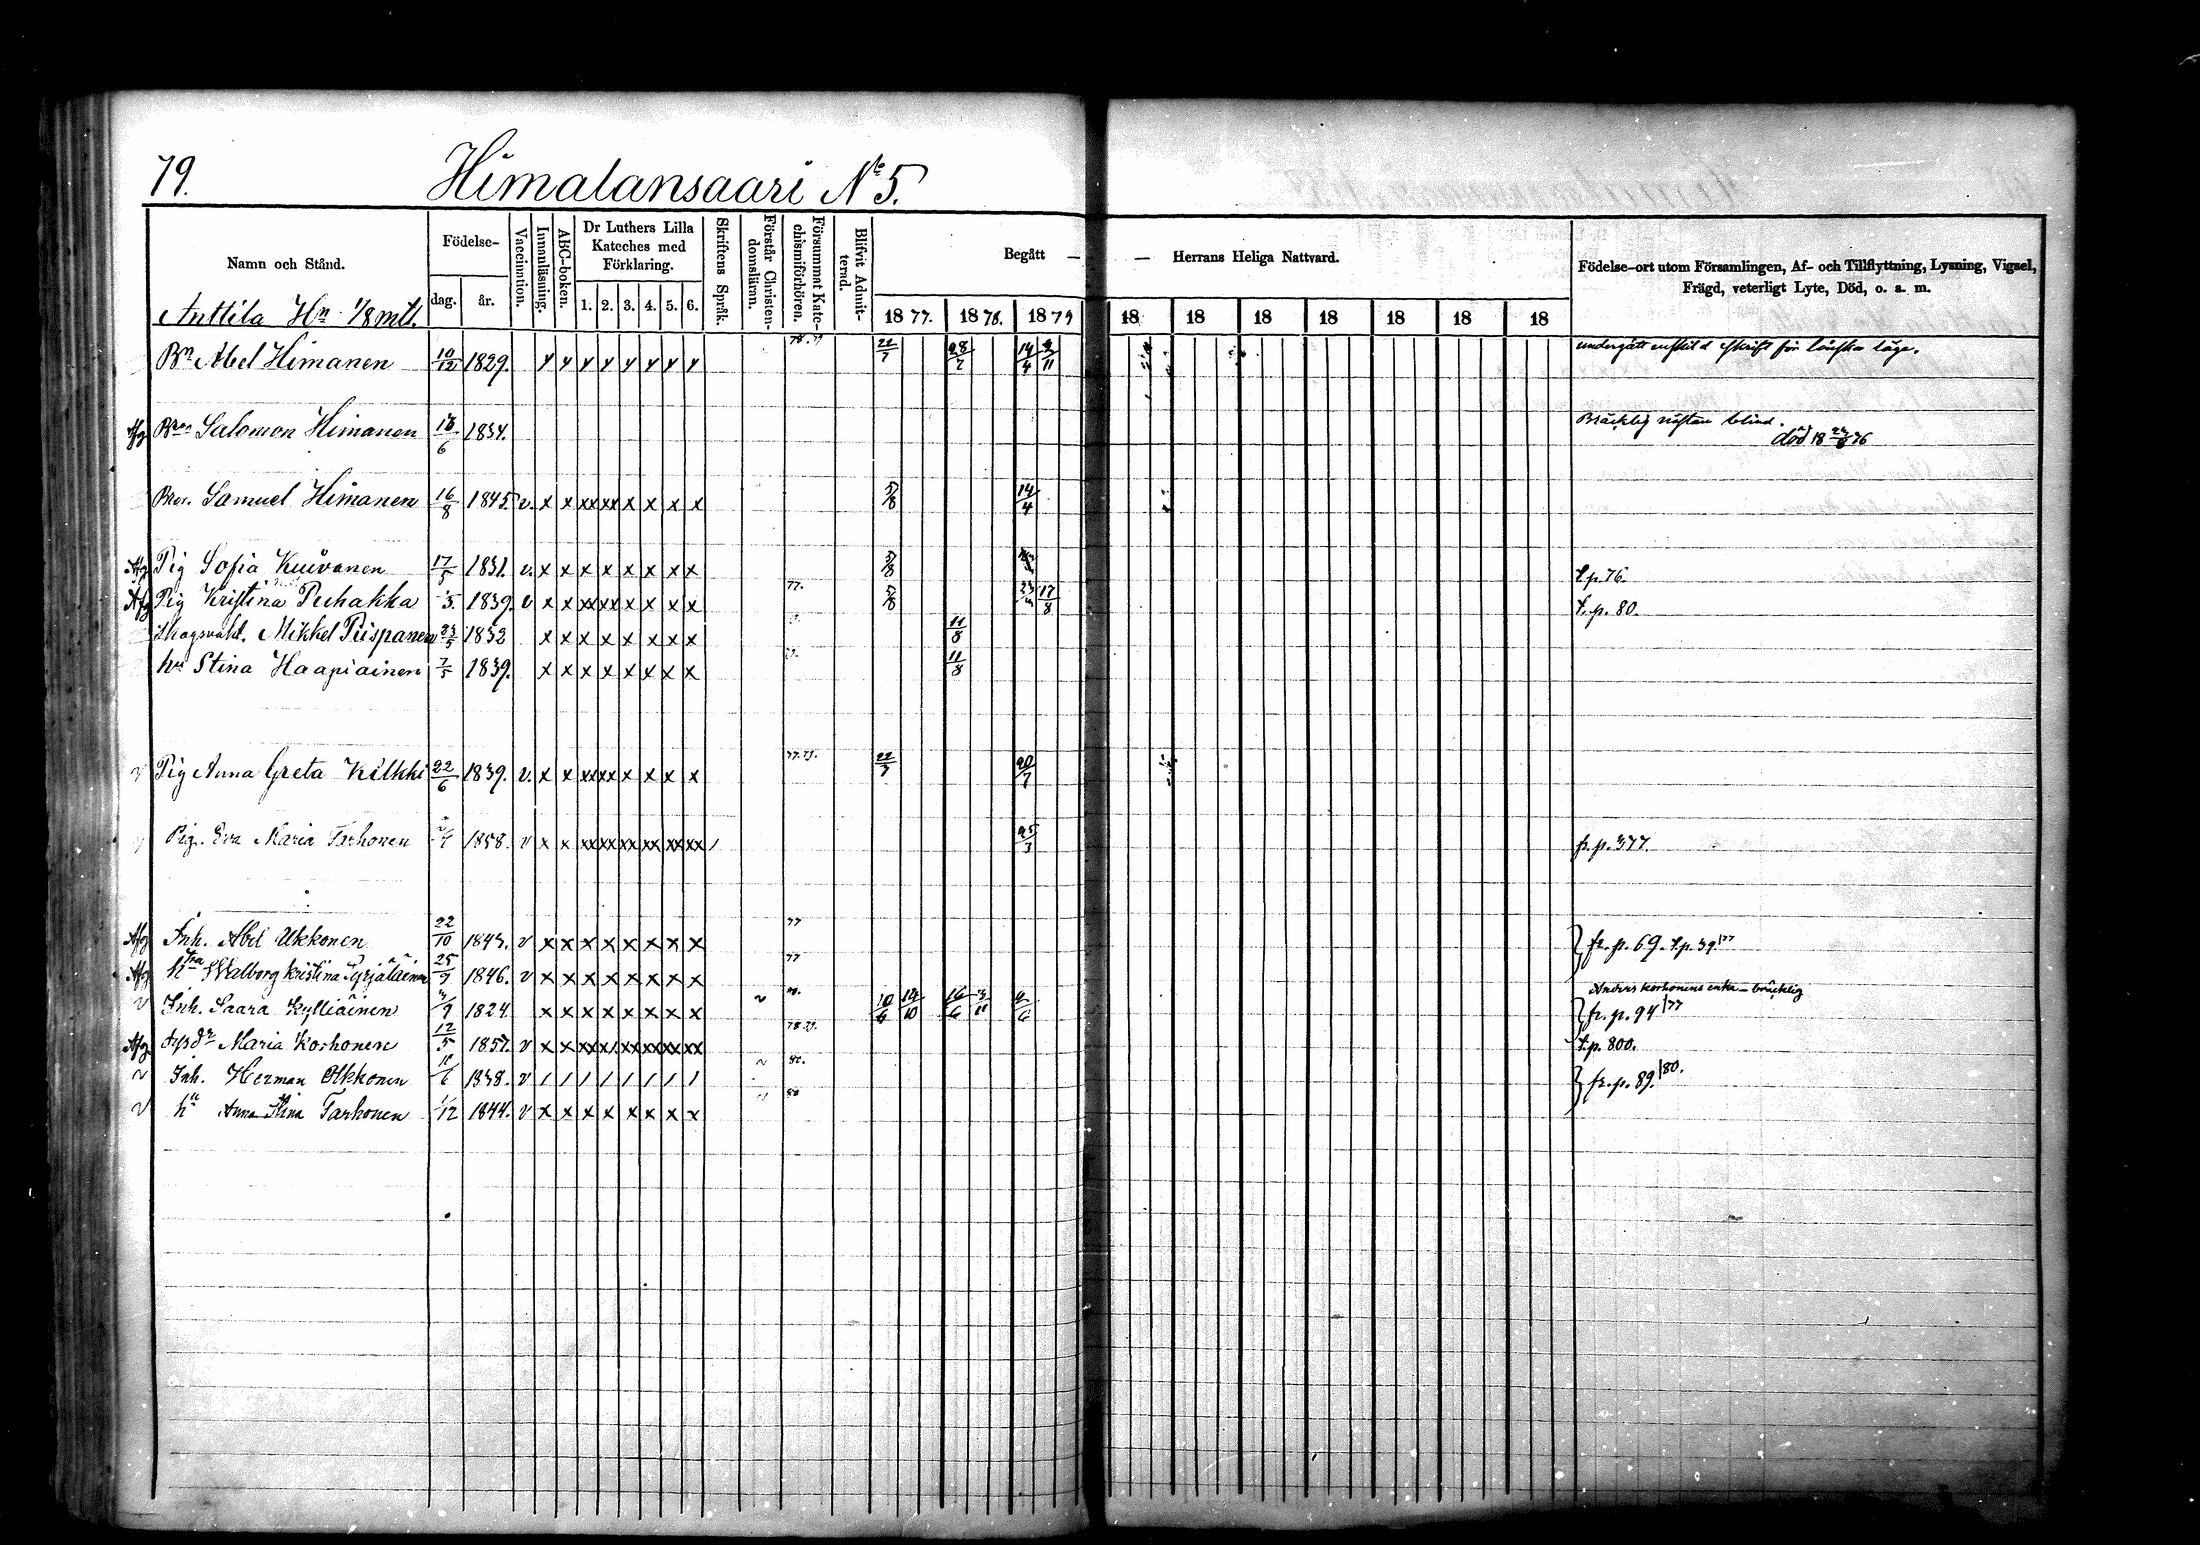 79.
Himalansaari No 5.
Namn och Stånd.
Födelse-
dag.
år.
Vaccination.
Innanläsning.
ABC-boken.
Dr Luthers Lilla
Kateches med
Förklaring.
1. 2. 3. 4. 5. 6.
Skriftens Språk.
Förstår Christen-
domsläran.
Försummat Kate-
chismiförhören.
Blifvit Admit-
terad.
Begått — — Herrans Heliga Nattvard.
1877. 1878. 1879 18 18 18 18 18 18 18
Födelse-ort utom Församlingen, Af- och Tillflyttning, Lysning, Vigsel,
Frägd, veterligt Lyte, Död, o. a. m.
Anttila Hn 1/8 mtl.
Bn Abel Himanen 10/12 1829. y y y y y y y y 78.79 22/7 28/7 14/4 9/11 undergått enskild skrift för
Afg Bron Salomon Himanen 1834. Bräcklig nästan blind.
död 18 76
Bror. Samuel Himanen 16/8 1845. v. x x xx xx x x x x 5/8 14/4
Afg Pig Sofia Kuivanen 17/5 1831. v. x x x x x x x x 5/8 t.p. 76.
Afg Pig Kristina Puhakka 1839. v x x xx xx x x x x 77. 5/8 17/8 t.p. 80.
Skogsvakt. Mikkel Piispanen 23/5 1832 x x x x x x x x 11/8
hu Stina Haapiainen 7/5 1839. x x x x x x x x 11/8
v Pig Anna Greta Kilkki 22/6 1839. v. x x xx xx x x x x 77.79. 20/7
Pig. Eva Maria Tarhonen 1858. v x x xx xx xx xx xx xx / 25/3 fr. p. 377.
Afg Inh. Abel Ukkonen 22/10 1843. v x x x x x x x x 77 fr. p. 69. t.p. 39/77
Afg hu Walborg Kristina Pyrjäläinen 25/9 1846. v x x x x x x x x 77
Anders Korhonens enka — bräcklig
v Inh. Saara Kylliäinen 1824. x x x x x x x x 10/6 14/10 16/6 3/11 fr. p. 94/77
Afg Maria Korhonen 12/5 1857. v x x xx xx xx xx xx 78.79. t.p. 800.
v Inh. Herman Ukkonen 1838. v / / / / / / / / 80. fr. p. 89./80.
v hu Anna Stina Tarhonen 1/12 1844. v x x x x x x x x 80